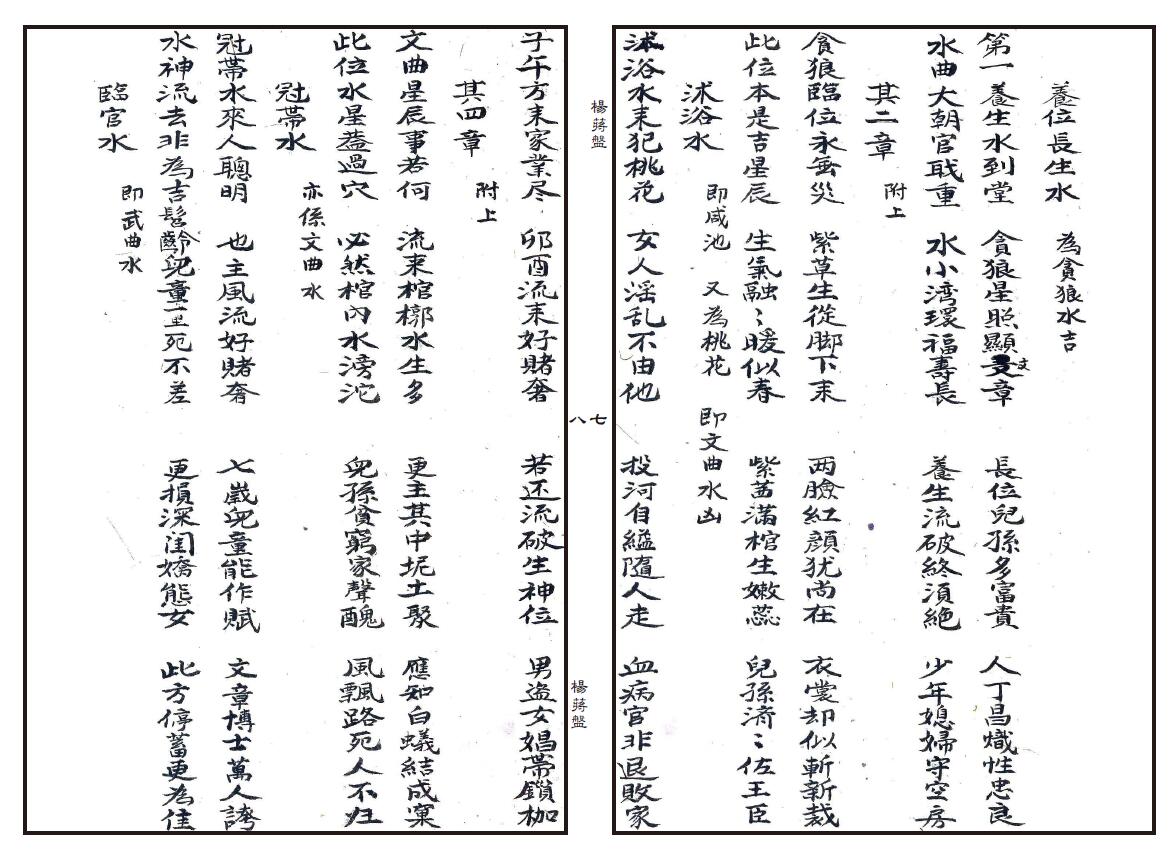 養位長生水　為貪狼水吉
第一養生水到堂　貪狼星照顯文章　長位兒孫多富貴　人丁昌熾性忠良
水曲大朝官職重　水小湾環福壽長　養生流破終湏絕　少年媳婦守空房
其二章　附上
貪狼臨位永無災　紫草生從脚下来　两臉紅顏犹尚在　衣裳却似斬新裁
此位本是吉星辰　生氣融〻暖似春　紫茜滿棺生嫩蕊　兒孫濟〻佐王臣
沭浴水　即咸池　又為桃花　即文曲水凶
沭浴水来犯桃花　女人淫乱不由他　投河自縊隨人走　血病官非退敗家
楊蔣盤
八七
楊蔣盤
子午方来家業尽　卯酉流来好賭奢　若还流破生神位　男盗女娼帶鎖枷
其四章　附上
文曲星辰事若何　流来棺槨水生多　更主其中坭土聚　應知白蟻結成窠
此位水星蓋過穴　必然棺內水滂沱　兒孫貧窮家聲醜　風飄路死人不归
冠帶水　亦係文曲水
冠帶水來人聰明　也主風流好賭奢　七歲兒童能作賦　文章博士萬人誇
水神流去非為吉　髫齡兒童死不差　更損深闺嬌態女　此方停蓄更為佳
臨官水　即武曲水